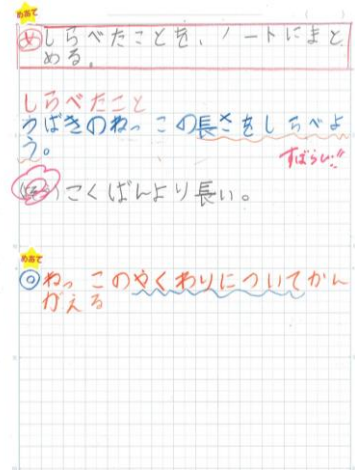 めあて
めしらべたことを、ノートにまと
める。
しらべたこと
うばきのねっこの長さをしらべよ
う。
すばらしい!!
こくばんより長い。
めあて
◎ねっこのやくわりについてかん
がえる